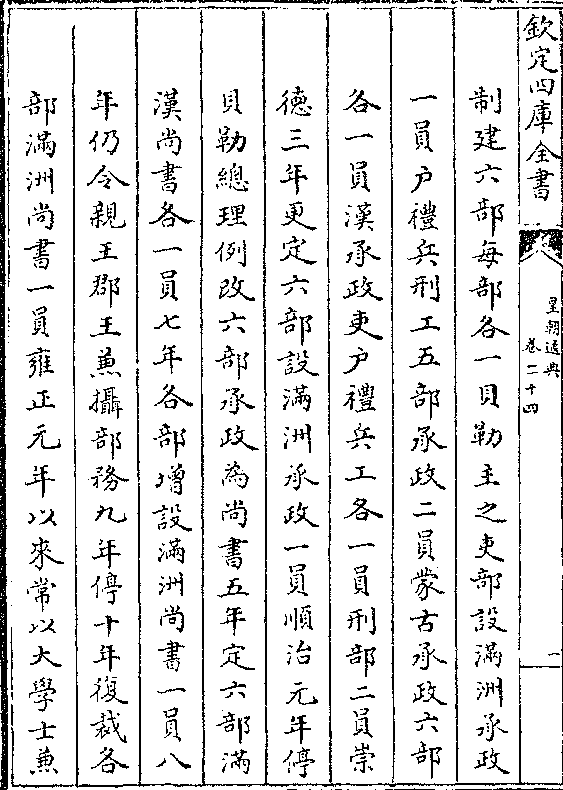 欽定四庫全書
皇朝通典
卷二十四
一
制建六部每部各一貝勒主之吏部設滿洲承政
一員户禮兵刑工五部承政二員蒙古承政六部
各一員漢承政吏户禮兵工各一員刑部二員崇
德三年更定六部設滿洲承政一員順治元年停
貝勒總理例改六部承政為尚書五年定六部滿
漢尚書各一員七年各部增設滿洲尚書一員八
年仍令親王郡王兼攝部務九年停十年復裁各
部滿洲尚書一員雍正元年以來常以大學士兼